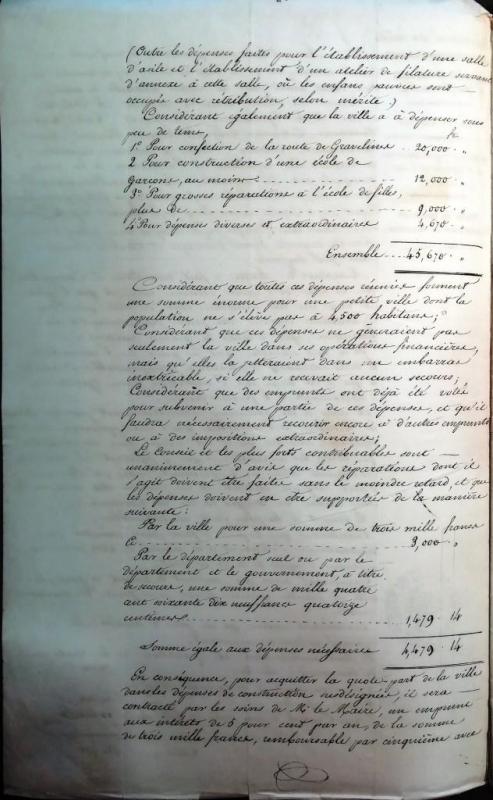 (Outre les dépenses faites pour l'établissement d'une salle
d'asile et l'établissement d'un atelier de filature servant
d'annexe à cette salle, où les enfans pauvres sont —
occupés avec rétribution, selon mérite.)
Considérant également que la ville a à dépenser sous
peu de tems, fr
1° Pour confection de la route de Gravelines.. 20,000 . "
2 Pour construction d'une école de
Garçons, au moins: 12,000 . "
3° Pour grosses réparations à l'école de filles,
plus de 9,000 . "
4 Pour dépenses diverses et extraordinaires 4,670 . "
Ensemble.... 45,670 . "
Considérant que toutes ces dépenses réunies forment
une somme énorme pour une petite ville dont la
population ne s'élève pas à 4,500 habitans;
Considérant que ces dépenses ne gêneraient pas
seulement la ville dans ses opérations financières,
mais qu'elles la jetteraient dans un embarras
inextricable, si elle ne recevait aucun secours;
Considérant que des emprunts ont déjà été votés
pour subvenir à une partie de ces dépenses, et qu'il
faudra nécessairement recourir encore à d'autres emprunts
ou à des impositions extraordinaires;
Le Conseil et les plus forts contribuables sont —
unanimement d'avis que les réparations dont il
s'agit doivent être faites sans le moindre retard, et que
les dépenses doivent en être supportées de la manière
suivante:
Par la ville pour une somme de trois mille francs
Ci 3,000 "
Par le département seul ou par le
département et le gouvernement, à titre
de secours, une somme de mille quatre
cent soixante dix neuf francs quatorze
centimes 1,479 . 14
Somme égale aux dépenses nécessaires 4,479 . 14
En conséquence, pour acquitter la quote-part de la ville
dans les dépenses de construction susdésignées, il sera —
contracté par les soins de Mr le Maire, un emprunt
aux intérêts de 5 pour cent par an, de la somme
de trois mille francs, remboursable par cinquième avec